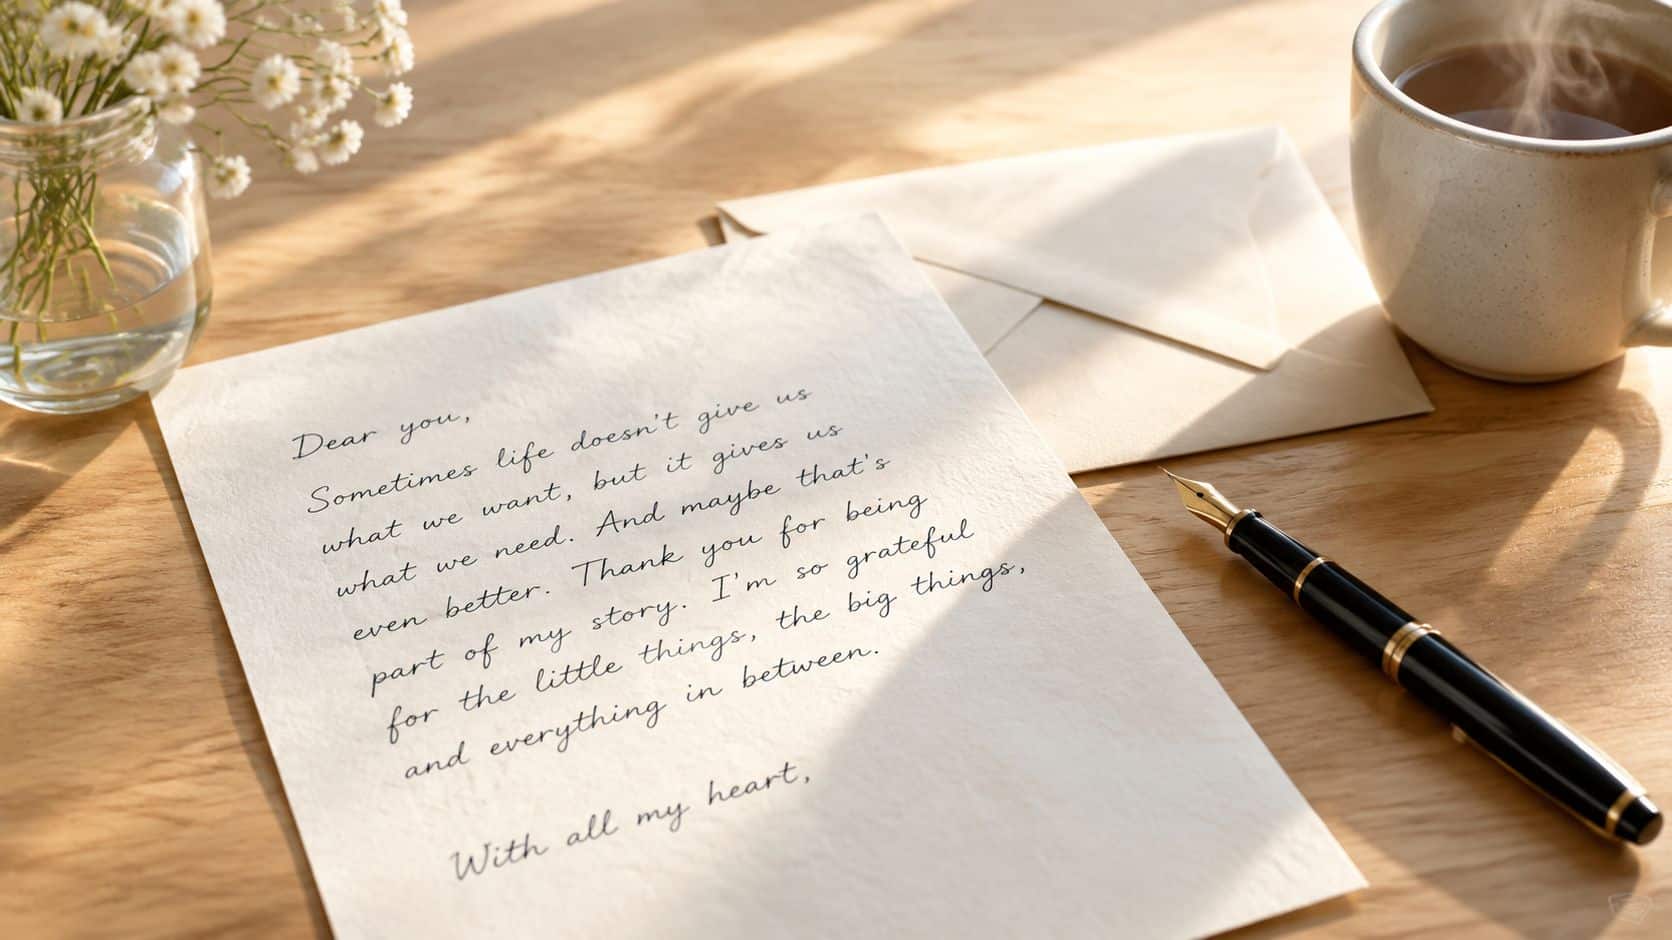 Dear you,
Sometimes life doesn't give us
what we want, but it gives us
what we need. And maybe that's
even better. Thank you for being
part of my story. I'm so grateful
for the little things, the big things,
and everything in between.
With all my heart,